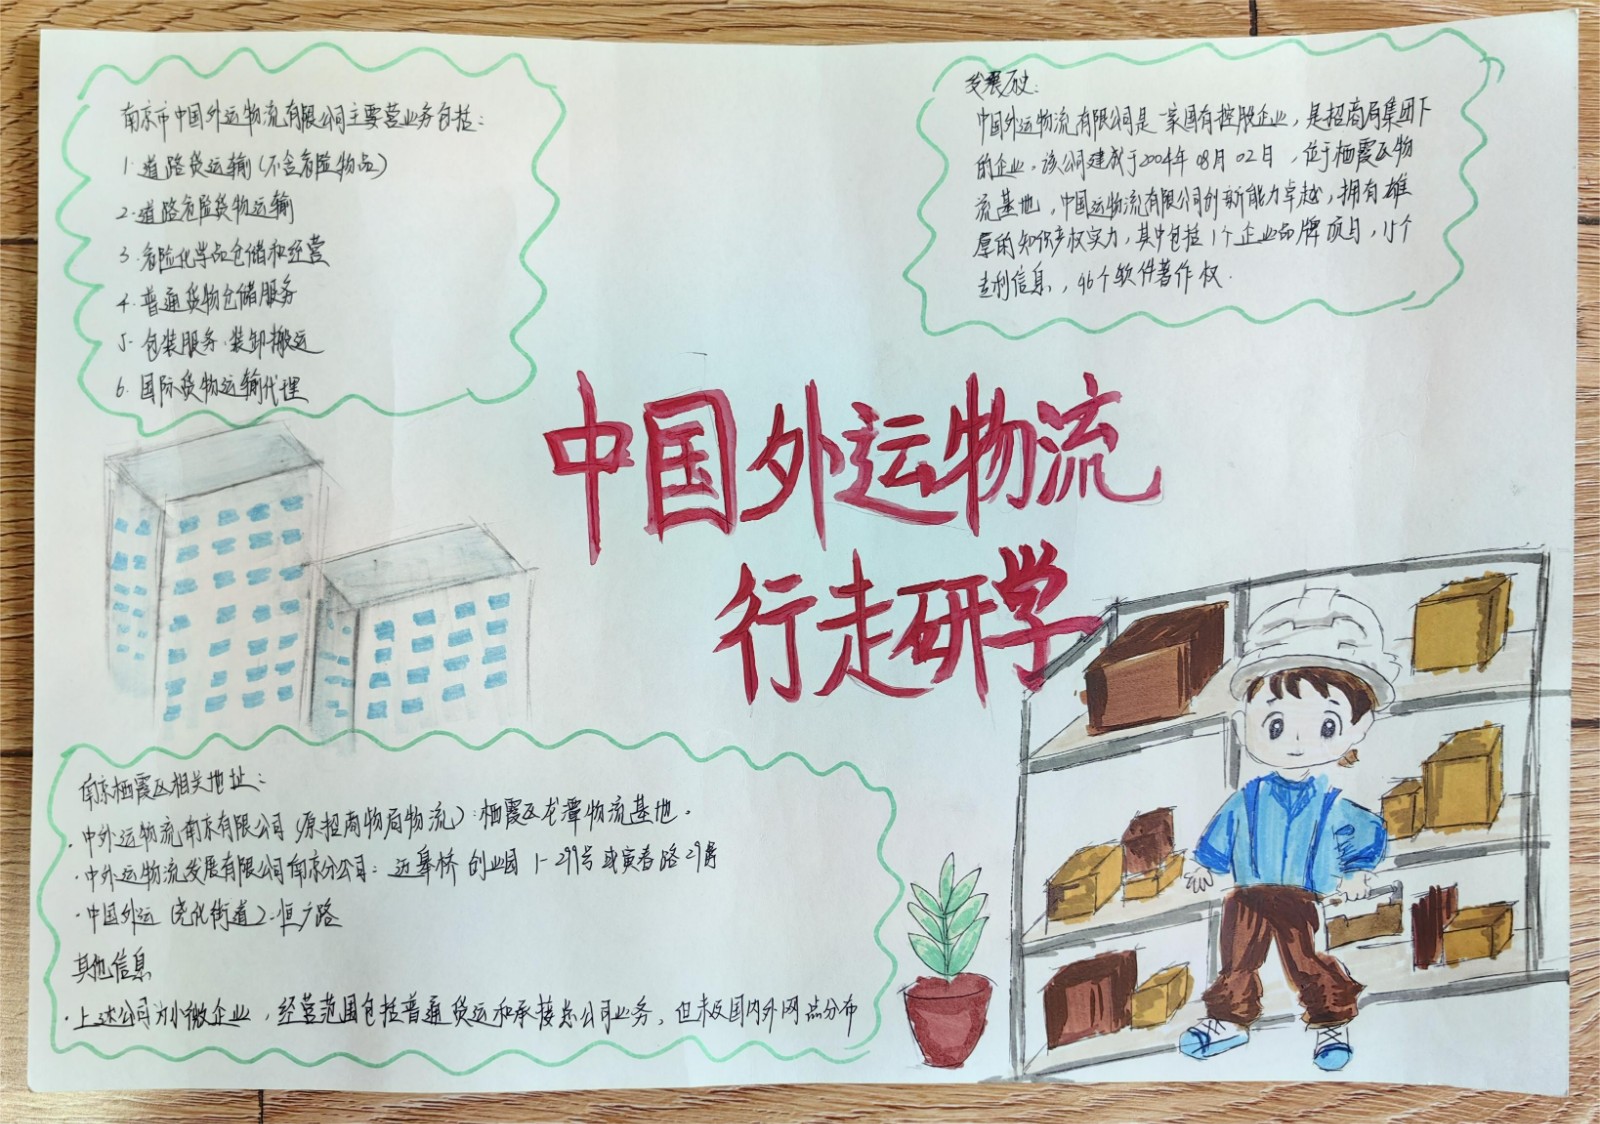 南京市中国外运物流有限公司主要营业务包括：
1. 道路货运输（不含危险物品）
2. 道路危险货物运输
3. 危险化学品仓储和经营
4. 普通货物仓储服务
5. 包装服务、装卸搬运
6. 国际货物运输代理
发展历史：
中国外运物流有限公司是一家国有控股企业，是招商局集团下
的企业，该公司建成于2004年08月02日，位于栖霞区物
流基地，中国运物流有限公司创新能力卓越，拥有雄
厚的知识产权实力，其中包括1个企业品牌项目，15个
专利信息，46个软件著作权.
中国外运物流
行走研学
南京栖霞区相关地址：
·中外运物流南京有限公司（原招商物局物流）：栖霞区龙潭物流基地。
·中外运物流发展有限公司南京分公司：迈皋桥创业园1-299号或寅春路29号
·中国外运（尧化街道）：恒广路
其他信息
·上述公司为小微企业，经营范围包括普通货运和承接总公司业务，但未及国内外网点分布